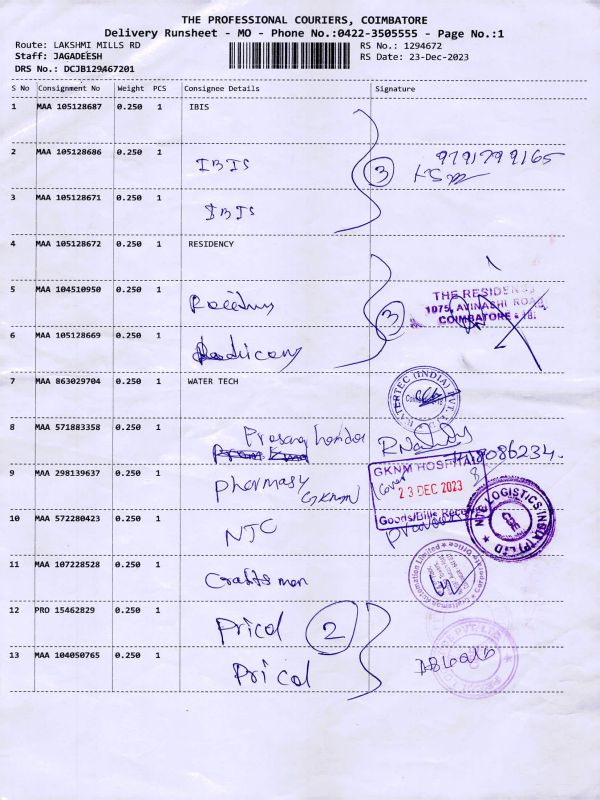 THE PROFESSIONAL COURIERS, COIMBATORE
Delivery Runsheet - MO - Phone No.:0422-3505555 - Page No.:1
Route: LAKSHMI MILLS RD
RS No.: 1294672
Staff: JAGADEESH
RS Date: 23-Dec-2023
DRS No.: DCJB129467201
S No Consignment No Weight PCS Consignee Details Signature
1 MAA 105128687 0.250 1 IBIS
2 MAA 105128686 0.250 1 IBIS 3 9791299165
3 MAA 105128671 0.250 1 IBIS
4 MAA 105128672 0.250 1 RESIDENCY
5 MAA 104510950 0.250 1
THE RESIDENCY
1075, AVINASHI ROAD
COIMBATORE
3
6 MAA 105128669 0.250 1
7 MAA 863029704 0.250 1 WATER TECH
8 MAA 571883358 0.250 1
9 MAA 298139637 0.250 1 Pharmasy GKNM
GKNM HOSPITAL
23 DEC 2023
Goods/Bills
10 MAA 572280423 0.250 1 NTC
NTC LOGISTICS INDIA (P) LTD
CBE
11 MAA 107228528 0.250 1 Craftsman
Craftsman Automation Limited
12 PRO 15462829 0.250 1 Pricol 2
13 MAA 104050765 0.250 1 Pricol